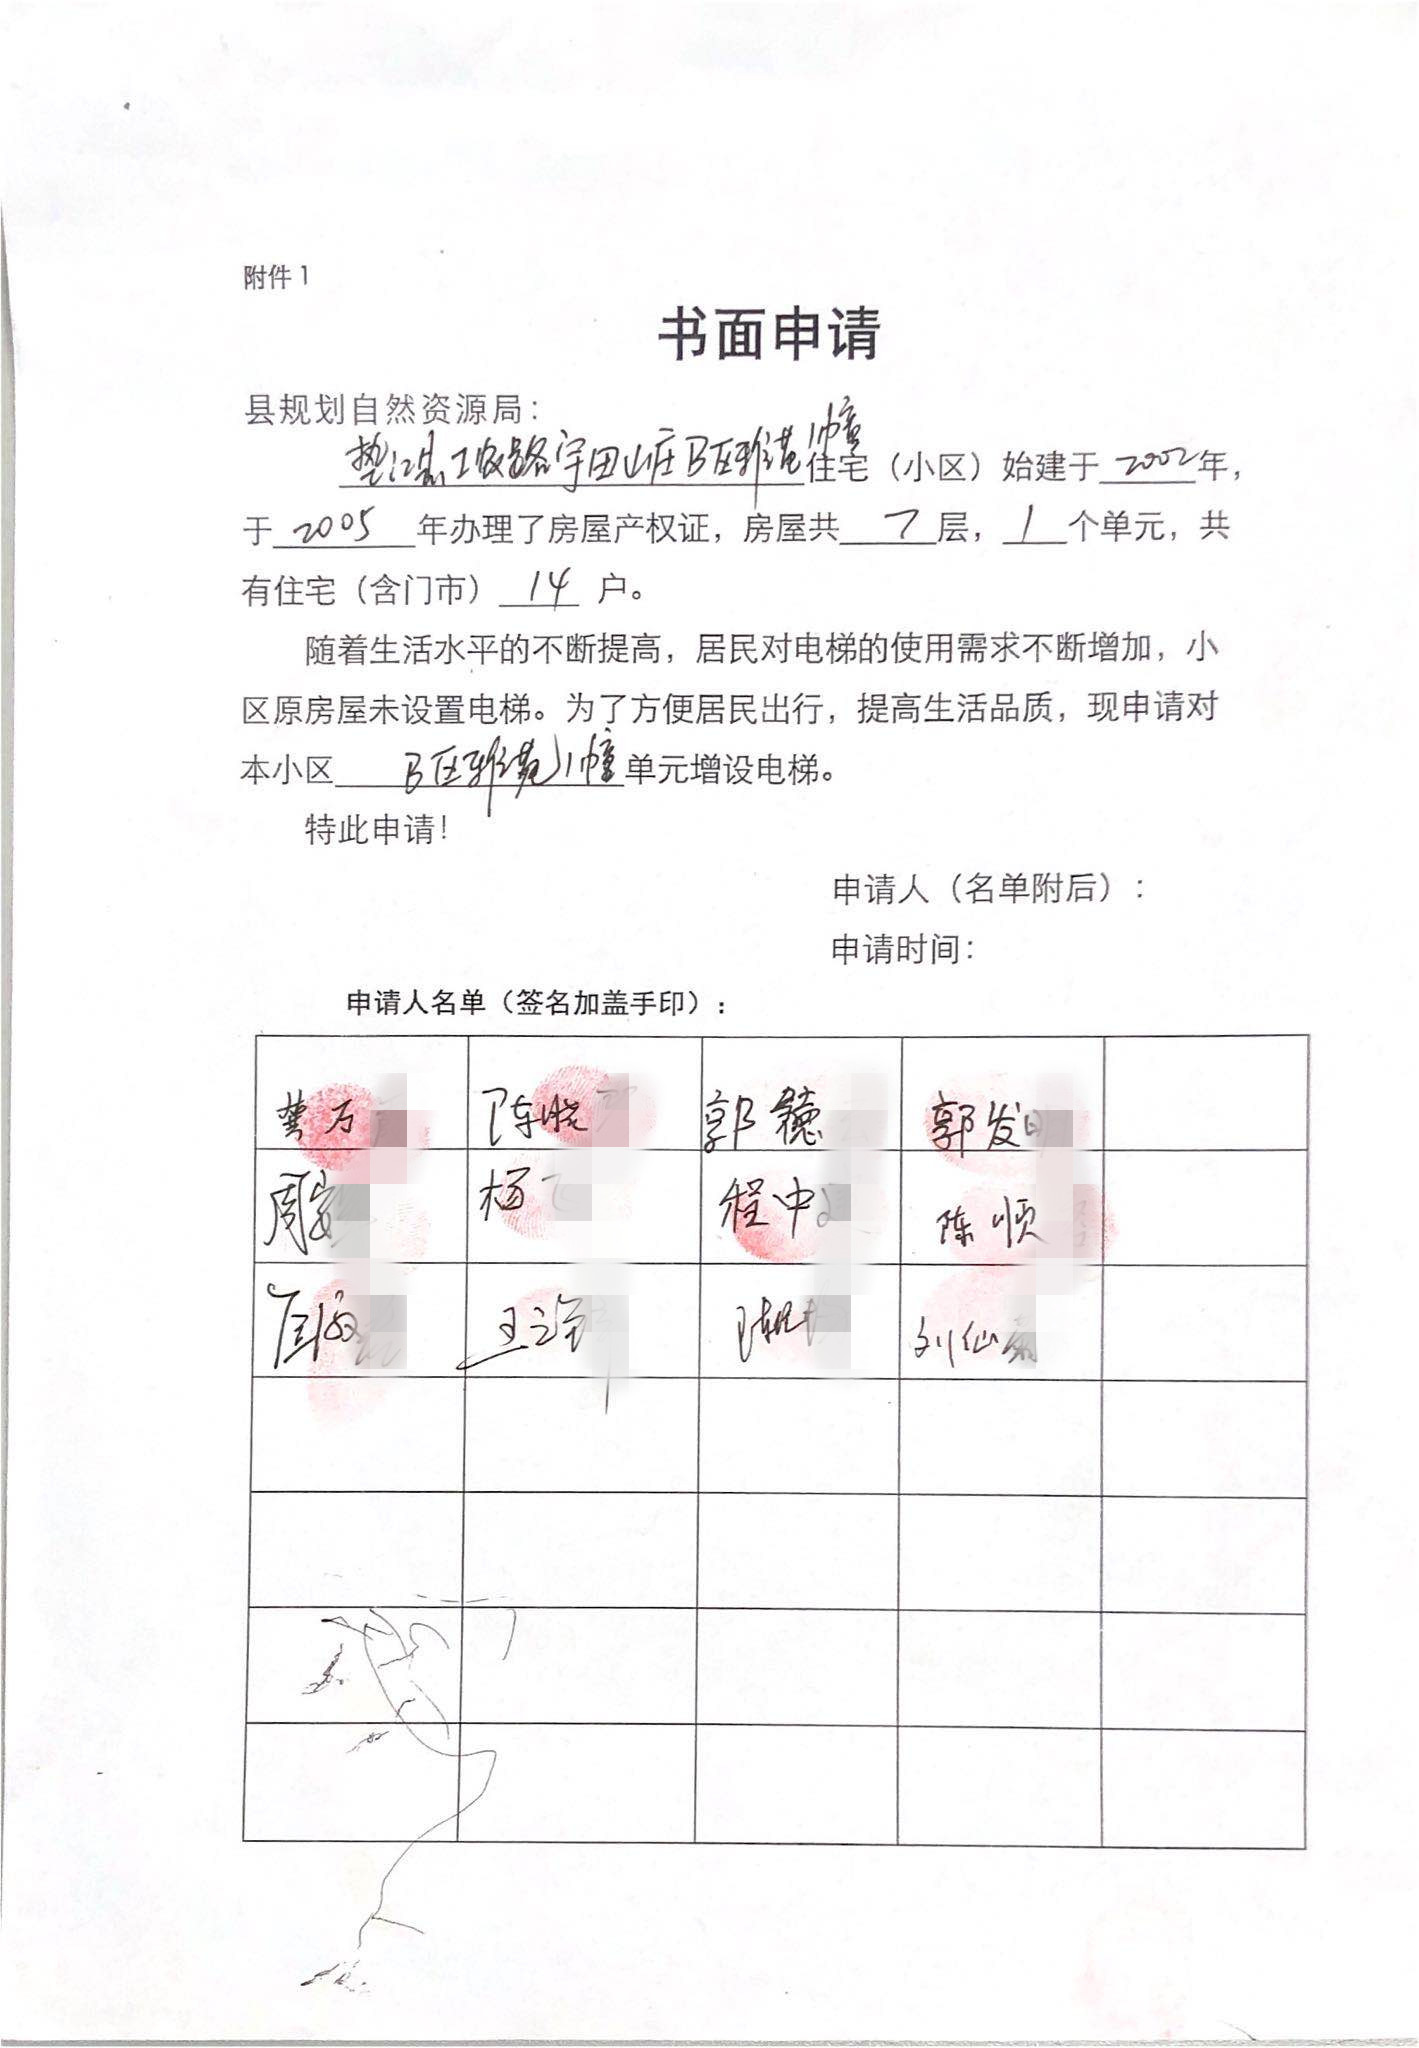 附件1
书面申请
县规划自然资源局：
垫江县工农路宇田山庄B区雅苑1幢住宅（小区）始建于2002年，
于2005年办理了房屋产权证，房屋共7层，1个单元，共
有住宅（含门市）14户。
随着生活水平的不断提高，居民对电梯的使用需求不断增加，小
区原房屋未设置电梯。为了方便居民出行，提高生活品质，现申请对
本小区B区雅苑1幢单元增设电梯。
特此申请！
申请人（名单附后）：
申请时间：
申请人名单（签名加盖手印）：
龚万 陈晓 郭德 郭发明
周 杨 程中 陈顺
王 陈 刘仙